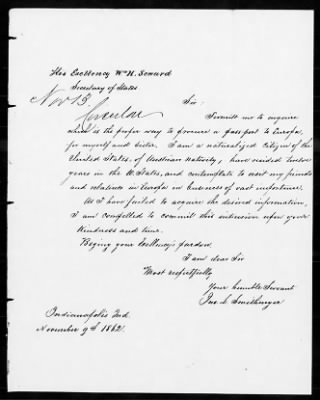 His Excellency Wm H. Seward
Secretary of States
Nov 13.
Circular
Sir
Permitt me to enquire
what is the proper way to procure a passport to Europe,
for myself and Sister. I am a naturalized Citizen of the
United States, of Austrian Nativity, have resided twelve
years in the U. States, and contemplate to visit my friends
and relatives in Europe on business of vast importance.
As I have failed to acquire the desired information,
I am compelled to commit this intrusion upon your
Kindness and time.
Beging your Excellency's pardon
I am dear Sir
Most respectfully
Your humble Servant
Indianapolis Ind.
November 9th 1862.